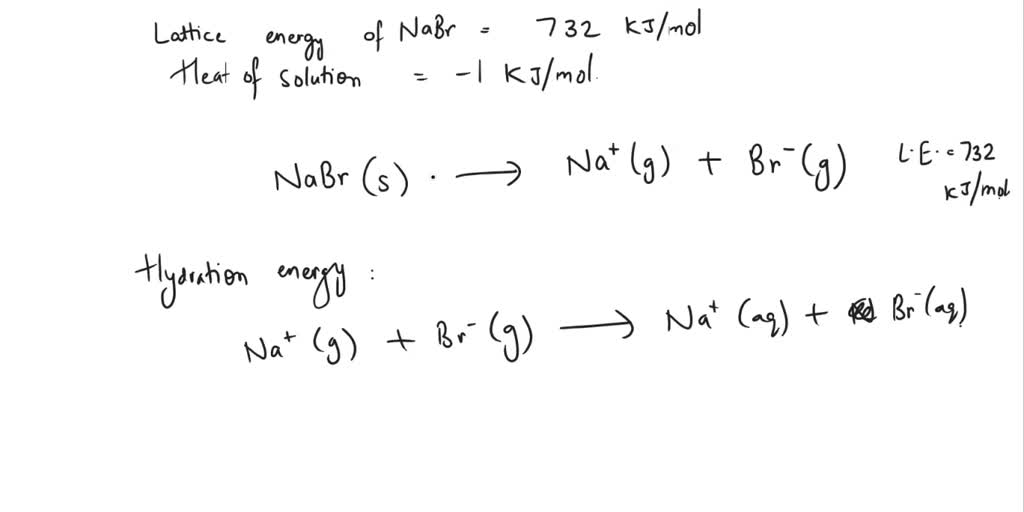 Lattice energy of NaBr = 732 KJ/mol
Heat of solution = -1 KJ/mol.
NaBr (s) . ⟶ Na⁺ (g) + Br⁻ (g) L.E. = 732
KJ/mol
Hydration energy :
Na⁺ (g) + Br⁻ (g) ⟶ Na⁺ (aq) + Br⁻ (aq)